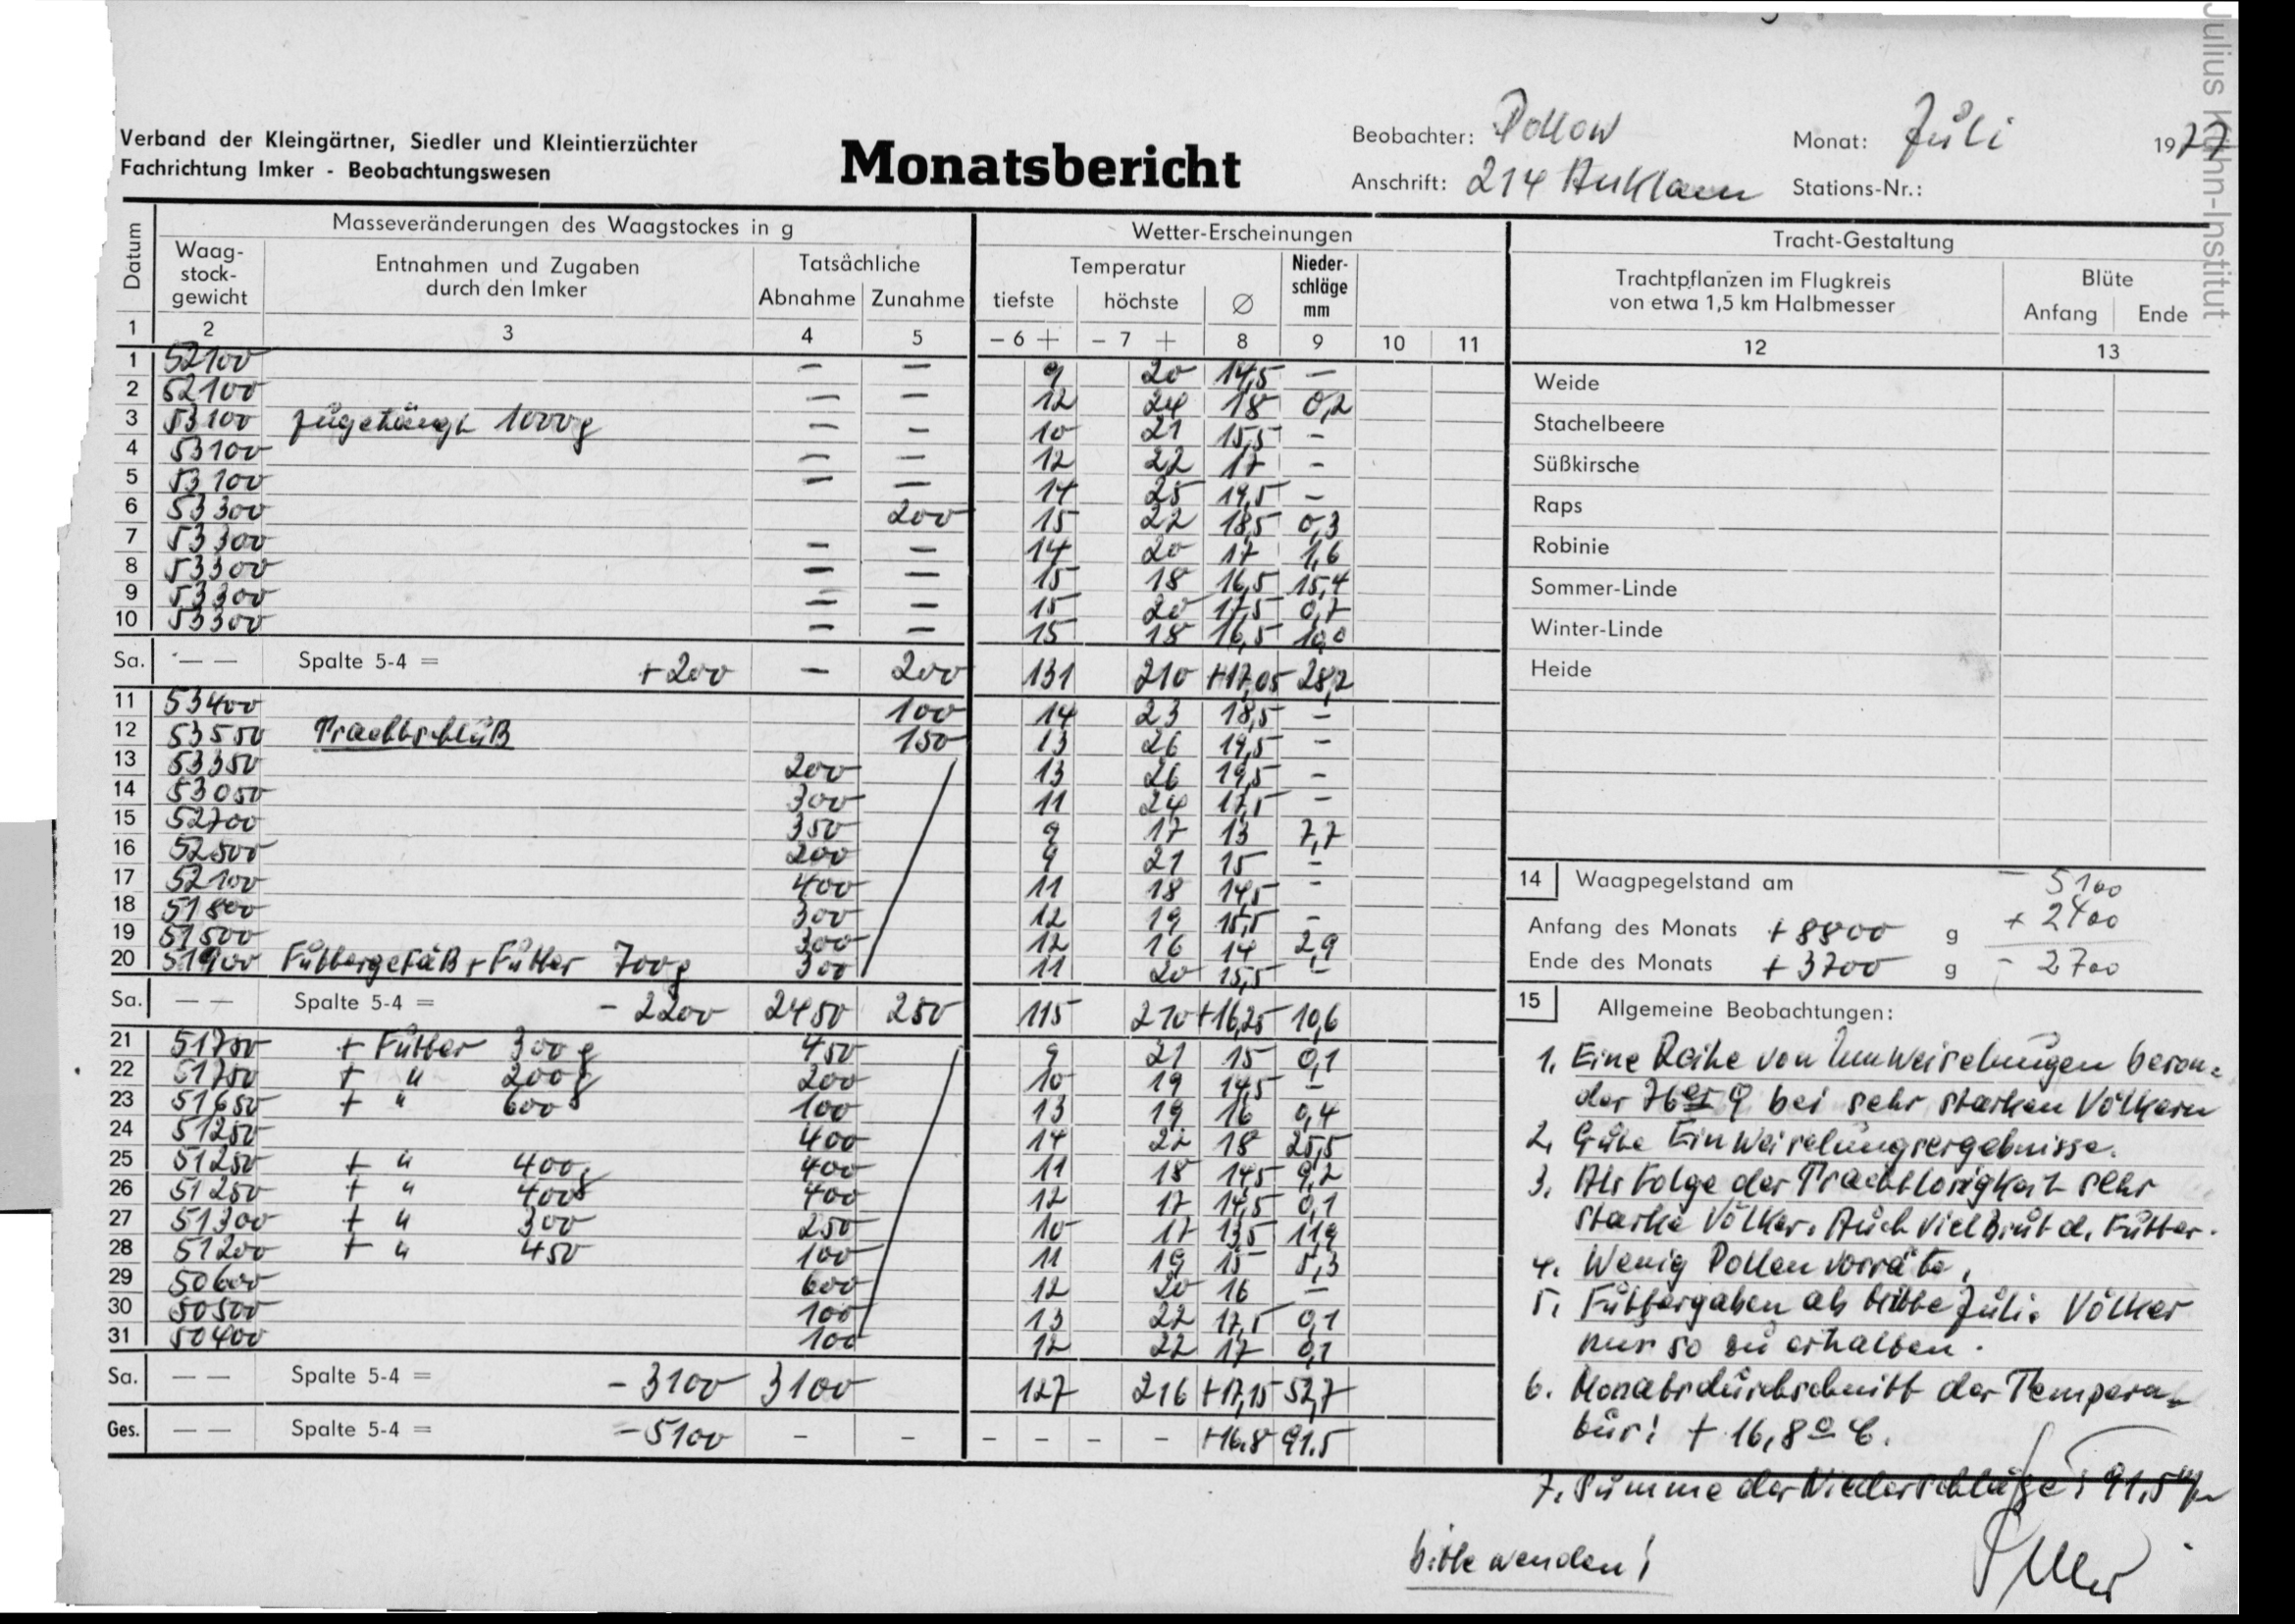 Julius Kühn-Institut
Verband der Kleingärtner, Siedler und Kleintierzüchter
Fachrichtung Imker - Beobachtungswesen
Monatsbericht
Beobachter: Pollow
Monat: Juli 1977
Anschrift: 214 Anklam
Stations-Nr.:
Datum
Masseveränderungen des Waagstockes in g
Wetter-Erscheinungen
Tracht-Gestaltung
Waag-stock-gewicht
Entnahmen und Zugaben durch den Imker
Tatsächliche
Abnahme Zunahme
Temperatur
tiefste höchste ∅
Nieder-schläge mm
Trachtpflanzen im Flugkreis von etwa 1,5 km Halbmesser
Blüte
Anfang Ende
1 2 3 4 5 - 6 + - 7 + 8 9 10 11 12 13
1 52100 — — 9 20 14,5 —
2 52100 — — 12 24 18 0,2
3 53100 zugehängt 1000g — — 10 21 15,5 —
4 53100 — — 12 22 17 —
5 53100 — — 14 25 19,5 —
6 53300 200 15 22 18,5 0,3
7 53300 — — 14 20 17 1,6
8 53300 — — 15 18 16,5 15,4
9 53300 — — 15 20 17,5 0,7
10 53300 — — 15 18 16,5 10,0
Sa. — — Spalte 5-4 = +200 — 200 131 210 +17,05 28,2
11 53400 100 14 23 18,5 —
12 53550 Trachtschluß 150 13 26 19,5 —
13 53350 200 13 26 19,5 —
14 53050 300 11 24 17,5 —
15 52700 350 9 17 13 7,7
16 52500 200 9 21 15 —
17 52100 400 11 18 14,5 —
18 51800 300 12 19 15,5 —
19 51500 300 12 16 14 2,9
20 51900 Futtergefäß + Futter 700g 300 11 20 15,5 —
Sa. — — Spalte 5-4 = - 2200 2450 250 115 210 +16,25 10,6
21 51750 + Futter 300 g 450 9 21 15 0,1
22 51750 + " 200g 200 10 19 14,5 —
23 51650 + " 600 100 13 19 16 0,4
24 51250 400 14 22 18 25,5
25 51250 + " 400g 400 11 18 14,5 9,2
26 51250 + " 400g 400 12 17 14,5 0,1
27 51300 + " 300 250 10 17 13,5 11,9
28 51200 + " 450 100 11 19 15 5,3
29 50600 600 12 20 16 —
30 50500 100 13 22 17,5 0,1
31 50400 100 12 22 17 0,1
Sa. — — Spalte 5-4 = - 3100 3100 127 216 +17,15 52,7
Ges. — — Spalte 5-4 = - 5100 - - - - - - +16,8 91.5
Weide
Stachelbeere
Süßkirsche
Raps
Robinie
Sommer-Linde
Winter-Linde
Heide
14 Waagpegelstand am
Anfang des Monats +8800 g
Ende des Monats +3700 g
- 5100
+ 2400
- 2700
15 Allgemeine Beobachtungen:
1. Eine Reihe von Umweiselungen beson=
der 76er ♀ bei sehr starken Völkern
2. Gute Einweiselungsergebnisse.
3. Als Folge der Trachtlosigkeit sehr
starke Völker. Auch viel Brut d. Futter.
4. Wenig Pollenvorräte.
5. Futtergaben ab Mitte Juli. Völker
nur so zu erhalten.
6. Monatsdurchschnitt der Tempera=
tur: + 16,8° C.
7. Summe der Niederschläge: 91,5
bitte wenden!